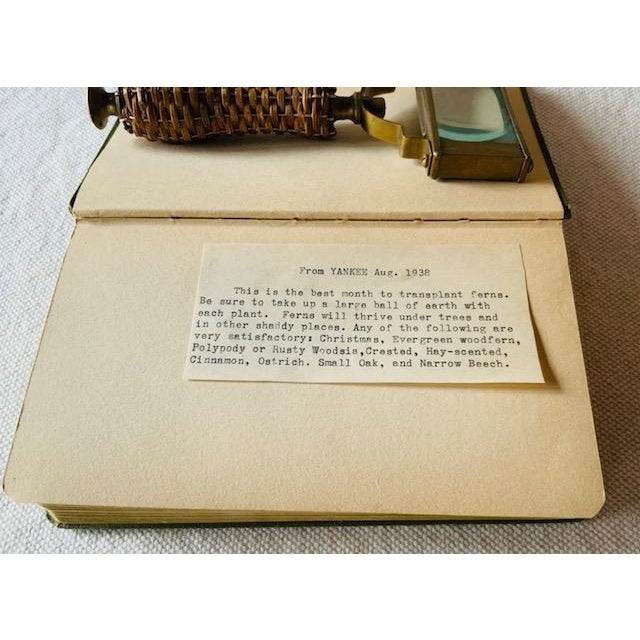 From YANKEE Aug. 1938
This is the best month to transplant ferns.
Be sure to take up a large ball of earth with
each plant. Ferns will thrive under trees and
in other shaddy places. Any of the following are
very satisfactory: Christmas, Evergreen woodfern,
Polypody or Rusty Woodsia,Crested, Hay-scented,
Cinnamon, Ostrich. Small Oak, and Narrow Beech.